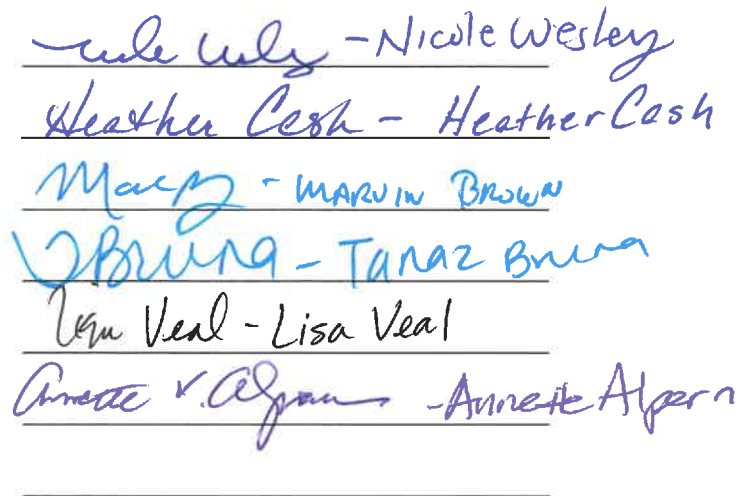 Nicole Wesley - Nicole Wesley
Heather Cash - Heather Cash
- MARVIN BROWN
Bruna - Tanaz Bruna
Lisa Veal - Lisa Veal
Annette V. Alpern - Annette Alpern